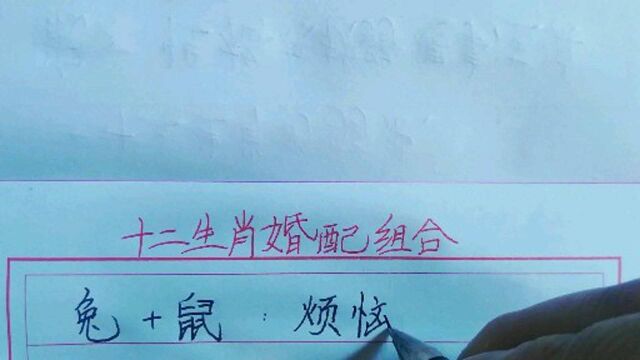 十二生肖婚配组合
兔+鼠：烦恼